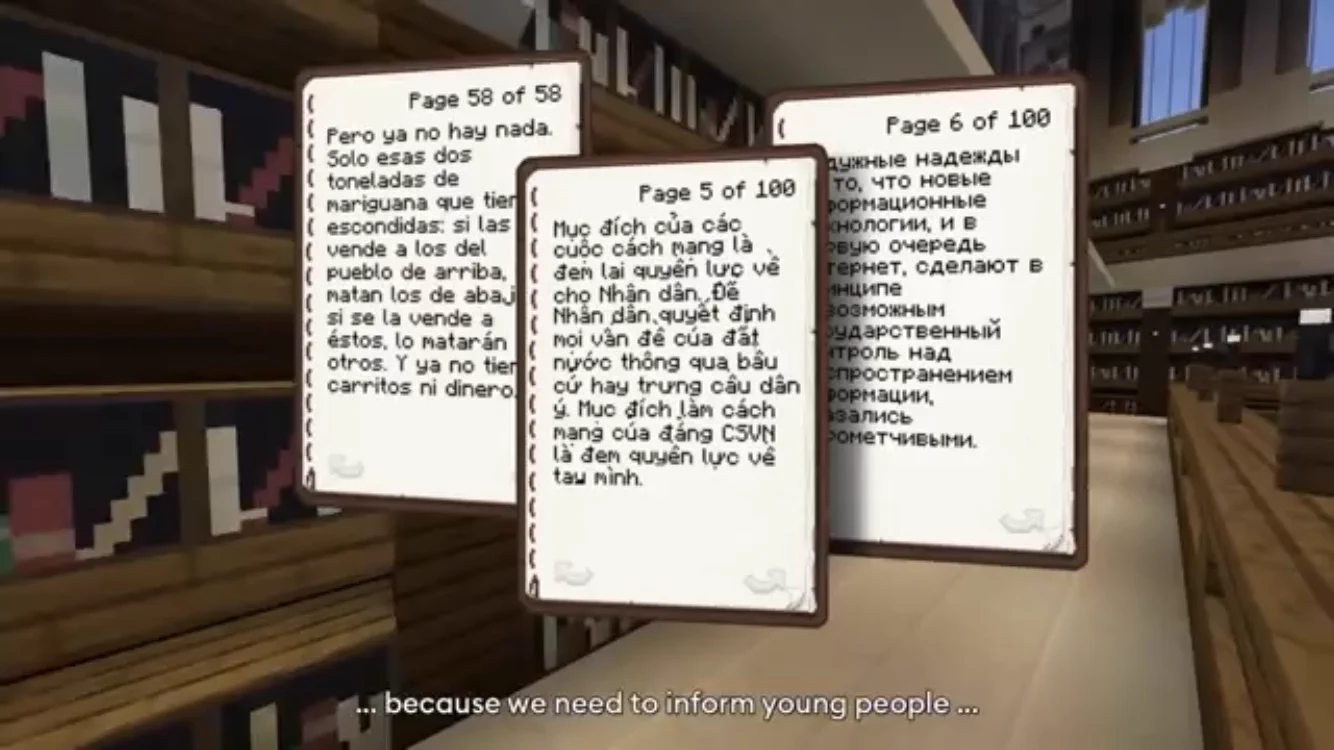 Page 58 of 58
Pero ya no hay nada.
Solo esas dos
toneladas de
mariguana que tien
escondidas: si las
vende a los del
pueblo de arriba,
matan los de abaj
si se la vende a
éstos, lo matarán
otros. Y ya no tien
carritos ni dinero.
Page 5 of 100
Mục đích của các
cuộc cách mạng là
đem lại quyền lực về
cho Nhân dân. Để
Nhân dân quyết định
mọi vấn đề của đất
nước thông qua bầu
cử hay trưng cầu dân
ý. Mục đích làm cách
mạng của đảng CSVN
là đem quyền lực về
tay mình.
Page 6 of 100
дужные надежды
то, что новые
формационные
хнологии, и в
рвую очередь
тернет, сделают в
инципе
возможным
сударственный
нтроль над
спространением
формации,
азались
рометчивыми.
... because we need to inform young people ...